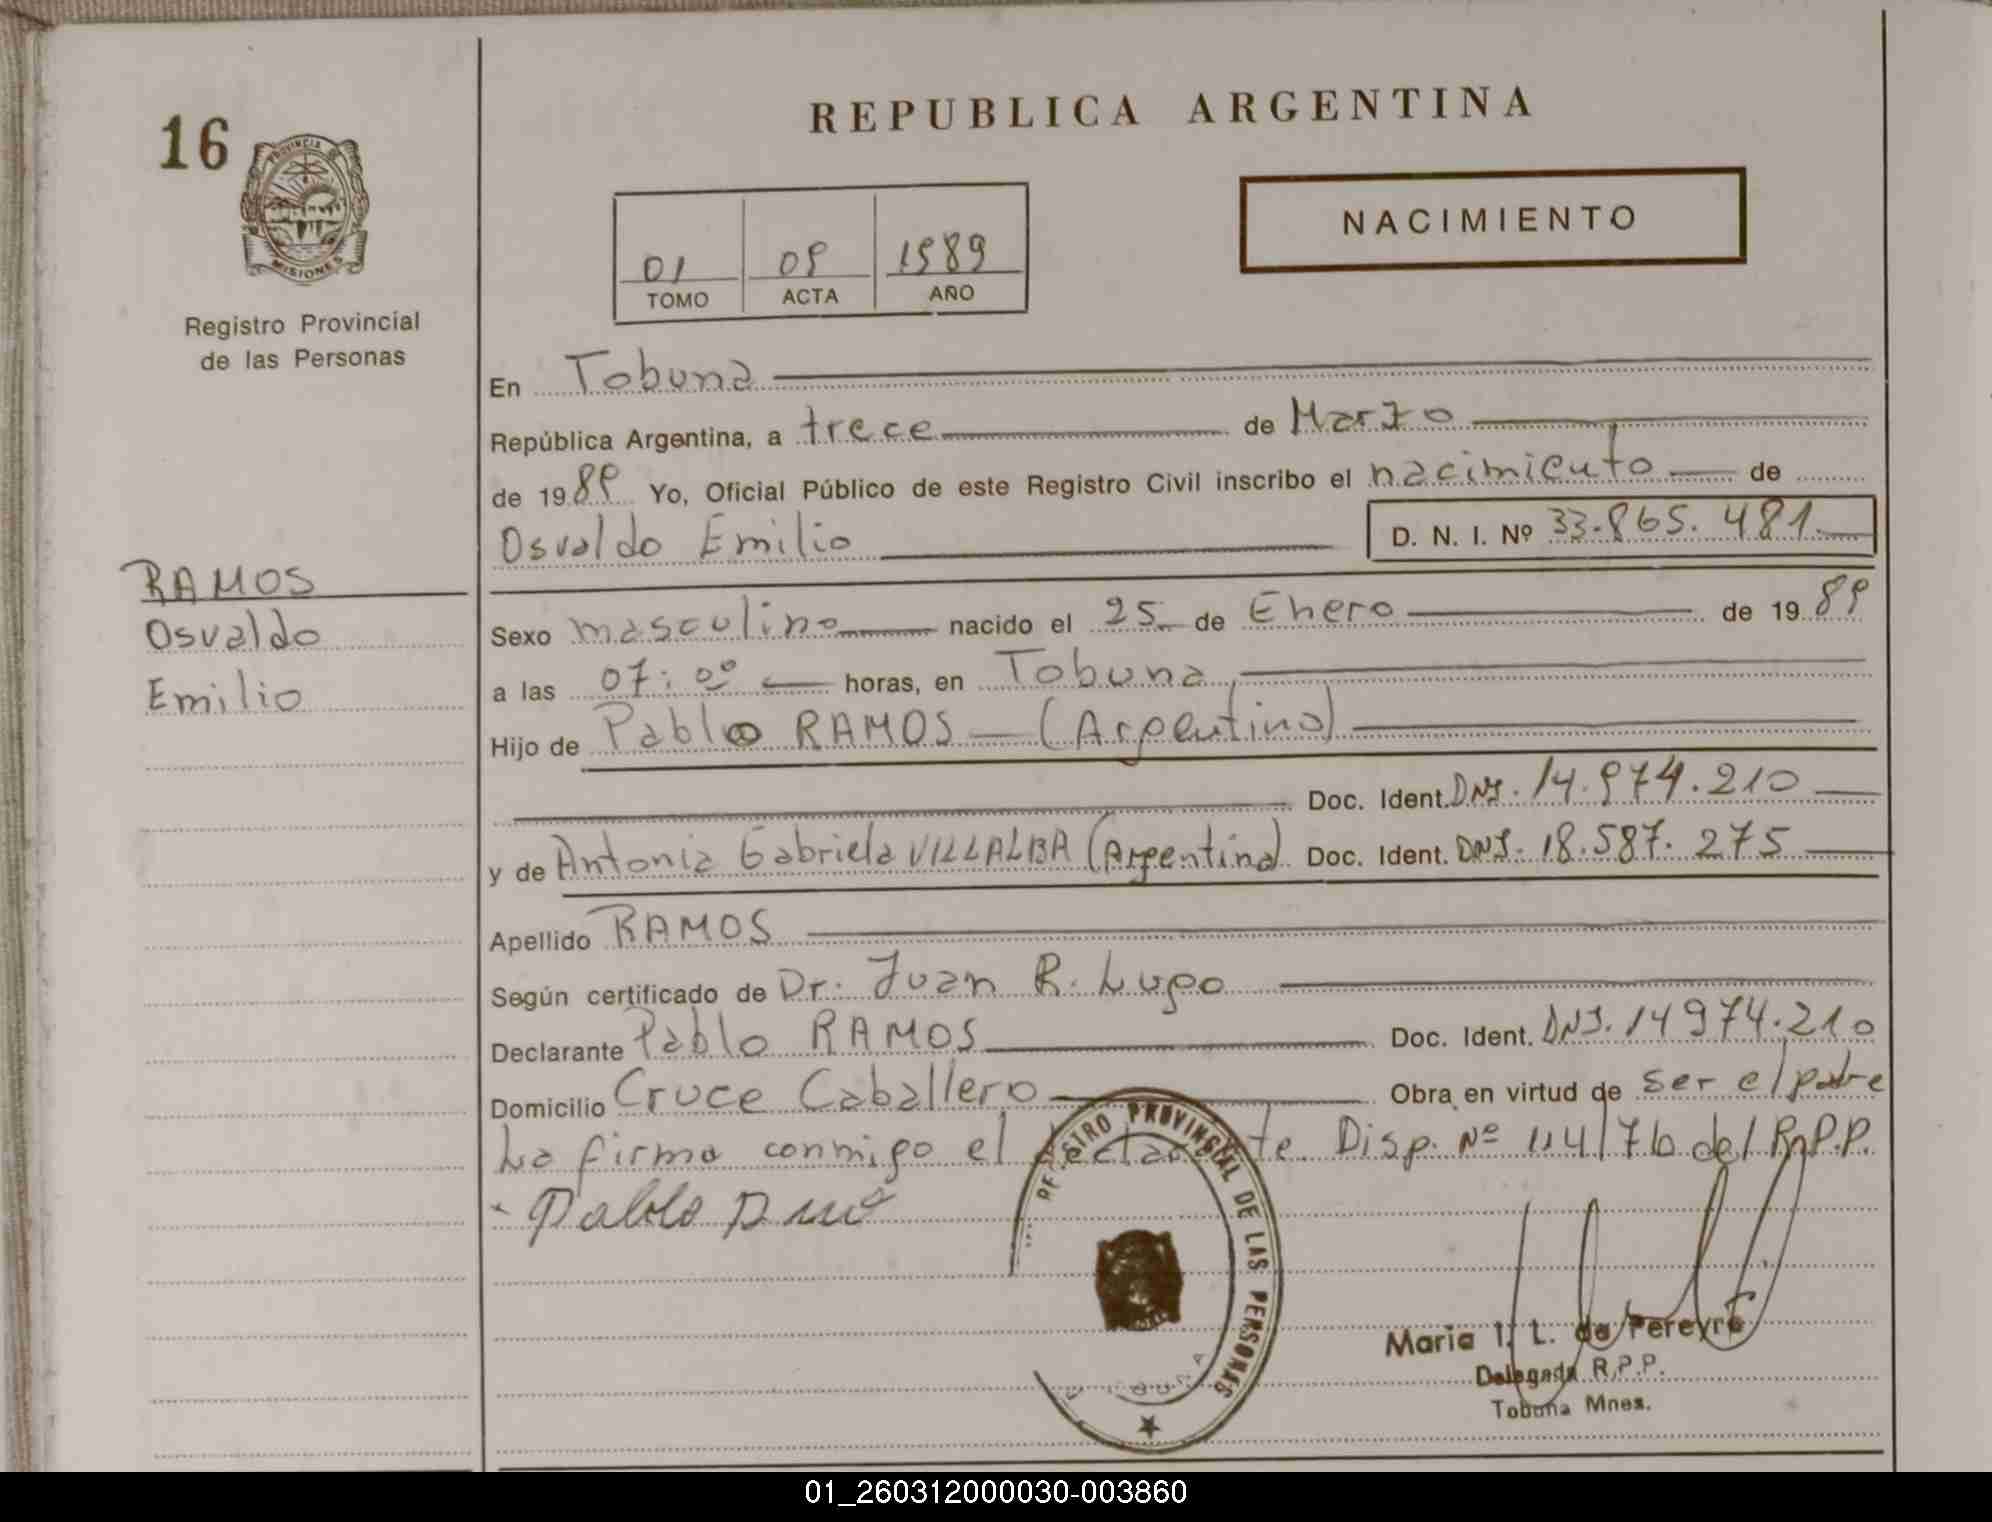 REPUBLICA ARGENTINA
16
PROVINCIA DE
MISIONES
Registro Provincial
de las Personas
NACIMIENTO
01 09 1989
TOMO ACTA AÑO
En Tobuna
República Argentina, a trece de Marzo
de 1989 Yo, Oficial Público de este Registro Civil inscribo el nacimiento de
Osvaldo Emilio D. N. I. Nº 33.865.481
RAMOS
Osvaldo
Emilio
Sexo masculino nacido el 25 de Enero de 1989
a las 07:00 horas, en Tobuna
Hijo de Pablo RAMOS — (Argentino)
Doc. Ident. DNI. 14.974.210
y de Antonia Gabriela VILLALBA (Argentina) Doc. Ident. DNI. 18.587.275
Apellido RAMOS
Según certificado de Dr. Juan R. Lugo
Declarante Pablo RAMOS Doc. Ident. DNI. 14974.210
Domicilio Cruce Caballero Obra en virtud de ser el padre
La firma conmigo el declarante. Disp. Nº 114/76 del R.P.P.
Pablo
REGISTRO PROVINCIAL DE LAS PERSONAS
Maria I. L. de Pereyra
Delegada R.P.P.
Tobuna Mnes.
01_260312000030-003860